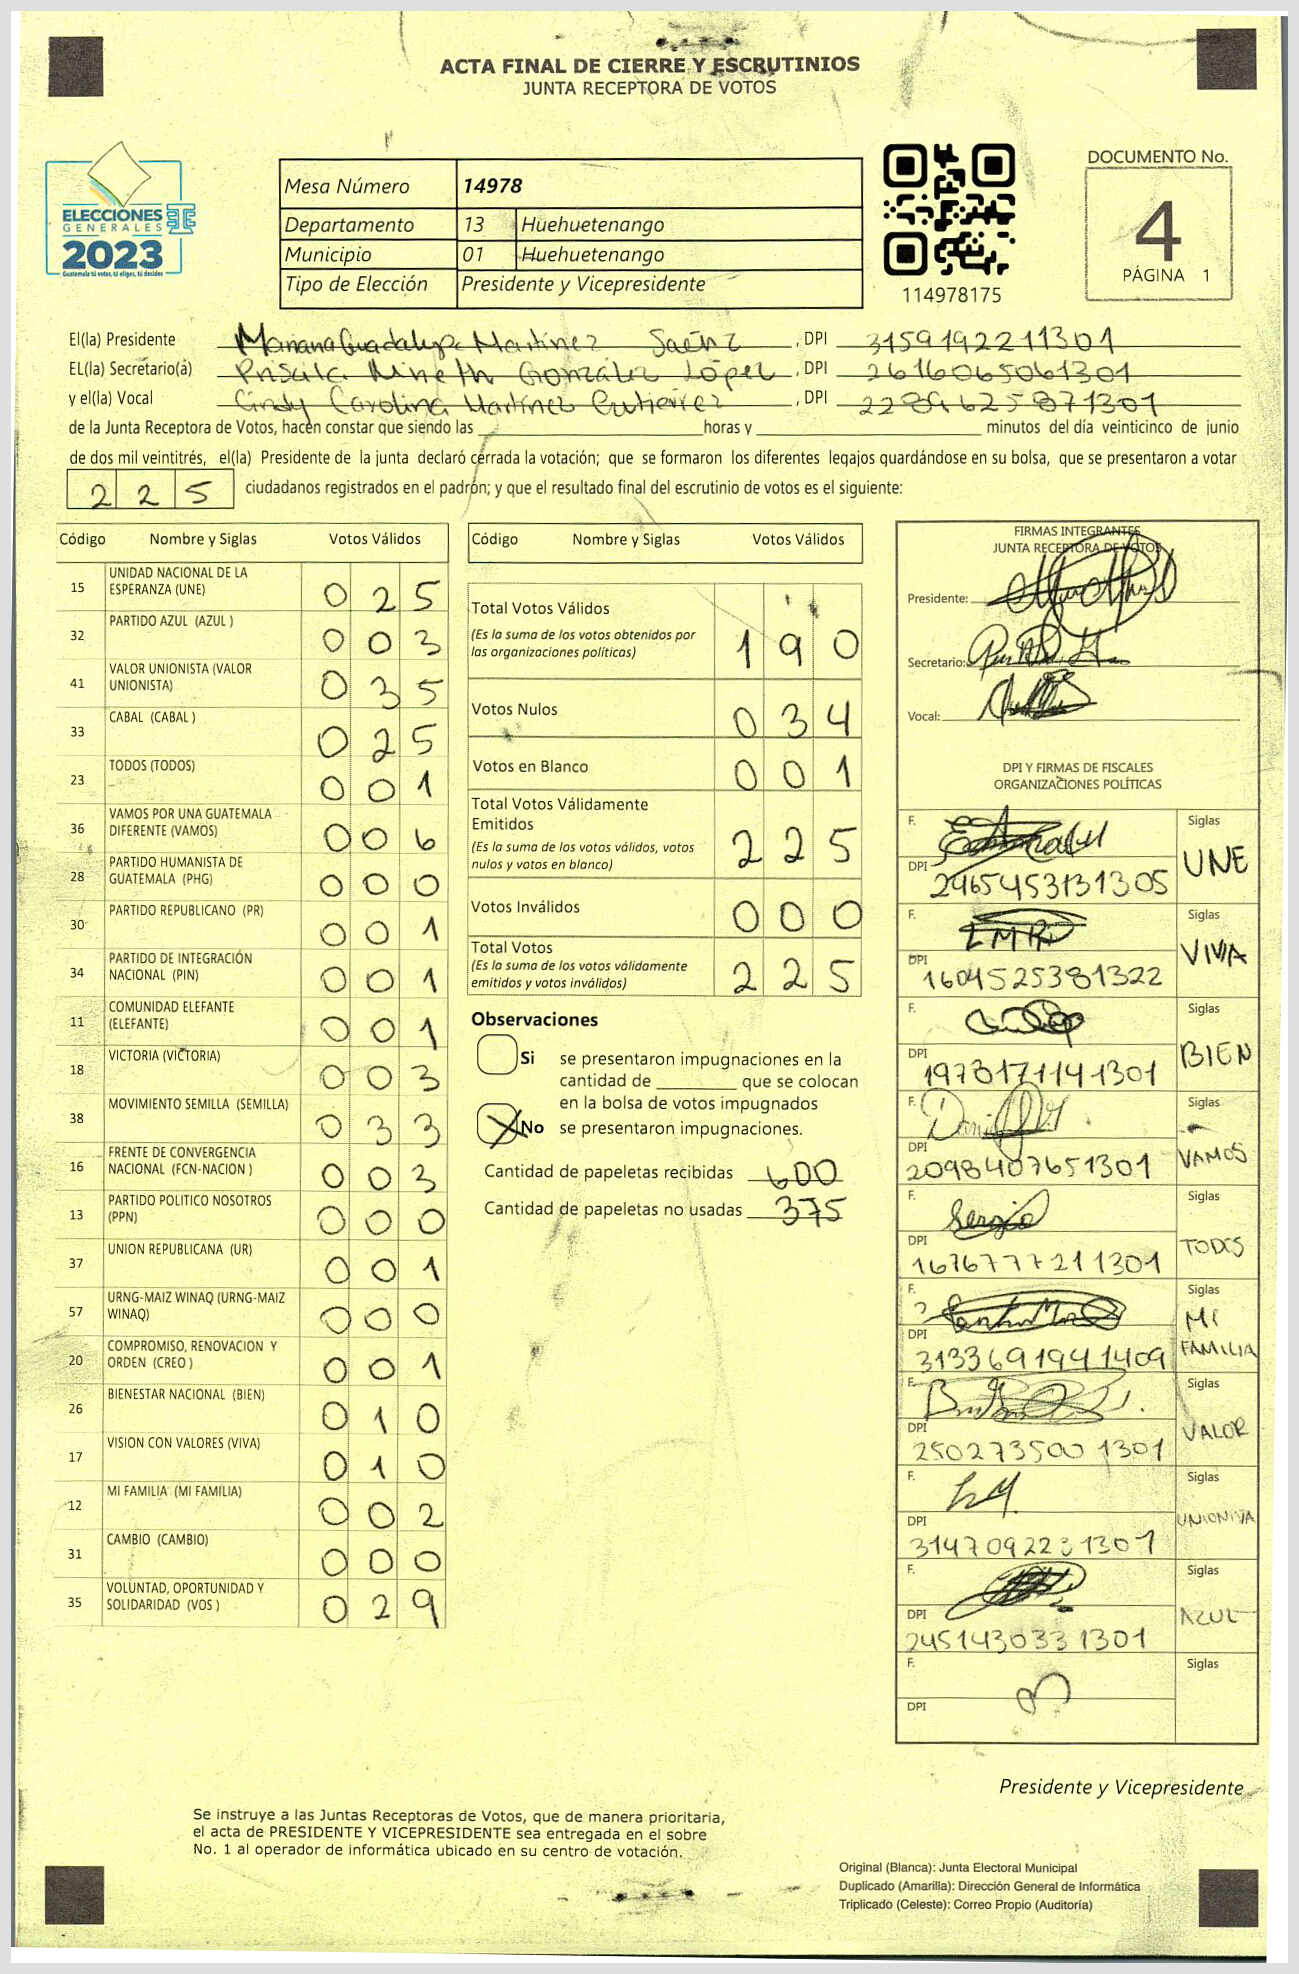 ACTA FINAL DE CIERRE Y ESCRUTINIOS
JUNTA RECEPTORA DE VOTOS
ELECCIONES
GENERALES
2023
Guatemala tú votas, tú eliges, tú decides
Mesa Número 14978
Departamento 13 Huehuetenango
Municipio 01 Huehuetenango
Tipo de Elección Presidente y Vicepresidente
114978175
DOCUMENTO No.
4
PÁGINA 1
El(la) Presidente Mariana Guadalupe Martínez Saénz , DPI 3159192211301
EL(la) Secretario(a) Priscila Nineth González López , DPI 2616065061301
y el(la) Vocal Cindy Carolina Martínez Gutierrez , DPI 2289625871301
de la Junta Receptora de Votos, hacen constar que siendo las horas y minutos del día veinticinco de junio
de dos mil veintitrés, el(la) Presidente de la junta declaró cerrada la votación; que se formaron los diferentes legajos guardándose en su bolsa, que se presentaron a votar
225 ciudadanos registrados en el padrón; y que el resultado final del escrutinio de votos es el siguiente:
Código Nombre y Siglas Votos Válidos
15 UNIDAD NACIONAL DE LA ESPERANZA (UNE) 025
32 PARTIDO AZUL (AZUL ) 003
41 VALOR UNIONISTA (VALOR UNIONISTA) 035
33 CABAL (CABAL ) 025
23 TODOS (TODOS) 001
36 VAMOS POR UNA GUATEMALA DIFERENTE (VAMOS) 006
28 PARTIDO HUMANISTA DE GUATEMALA (PHG) 000
30 PARTIDO REPUBLICANO (PR) 001
34 PARTIDO DE INTEGRACIÓN NACIONAL (PIN) 001
11 COMUNIDAD ELEFANTE (ELEFANTE) 001
18 VICTORIA (VICTORIA) 003
38 MOVIMIENTO SEMILLA (SEMILLA) 033
16 FRENTE DE CONVERGENCIA NACIONAL (FCN-NACION ) 003
13 PARTIDO POLITICO NOSOTROS (PPN) 000
37 UNION REPUBLICANA (UR) 001
57 URNG-MAIZ WINAQ (URNG-MAIZ WINAQ) 000
20 COMPROMISO, RENOVACION Y ORDEN (CREO ) 001
26 BIENESTAR NACIONAL (BIEN) 010
17 VISION CON VALORES (VIVA) 010
12 MI FAMILIA (MI FAMILIA) 002
31 CAMBIO (CAMBIO) 000
35 VOLUNTAD, OPORTUNIDAD Y SOLIDARIDAD (VOS ) 029
Código Nombre y Siglas Votos Válidos
Total Votos Válidos 190
(Es la suma de los votos obtenidos por
las organizaciones políticas)
Votos Nulos 034
Votos en Blanco 001
Total Votos Válidamente
Emitidos 225
(Es la suma de los votos válidos, votos
nulos y votos en blanco)
Votos Inválidos 000
Total Votos 225
(Es la suma de los votos válidamente
emitidos y votos inválidos)
Observaciones
Si se presentaron impugnaciones en la
cantidad de que se colocan
en la bolsa de votos impugnados
X No se presentaron impugnaciones.
Cantidad de papeletas recibidas 600
Cantidad de papeletas no usadas 375
FIRMAS INTEGRANTES
JUNTA RECEPTORA DE VOTOS
Presidente:
Secretario:
Vocal:
DPI Y FIRMAS DE FISCALES
ORGANIZACIONES POLÍTICAS
F. Siglas
DPI 2465453131305 UNE
F. Siglas
DPI 1604525381322 VIVA
F. Siglas
DPI 1973171141301 BIEN
F. Siglas
DPI 2098407651301 VAMOS
F. Sergio Siglas
DPI 1676777211301 TODOS
F. Siglas
DPI 3133691941409 MI FAMILIA
F. Siglas
DPI 2502735001301 VALOR
F. Siglas
DPI 3147092231301
F. Siglas
DPI 2451430331301 AZUL
F. Siglas
DPI
Presidente y Vicepresidente
Se instruye a las Juntas Receptoras de Votos, que de manera prioritaria,
el acta de PRESIDENTE Y VICEPRESIDENTE sea entregada en el sobre
No. 1 al operador de informática ubicado en su centro de votación.
Original (Blanca): Junta Electoral Municipal
Duplicado (Amarilla): Dirección General de Informática
Triplicado (Celeste): Correo Propio (Auditoría)